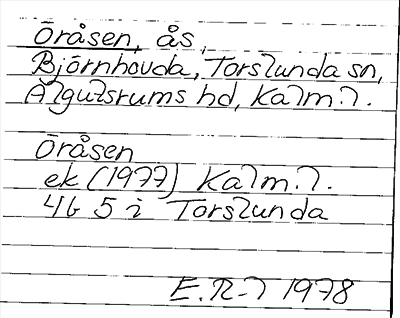 Öråsen, ås,
Björnhovda, Torslunda sn,
Algutsrums hd, Kalm.l.
Öråsen
ek (1977) Kalm.l.
4G 5 i Torslunda
E.R-l 1978